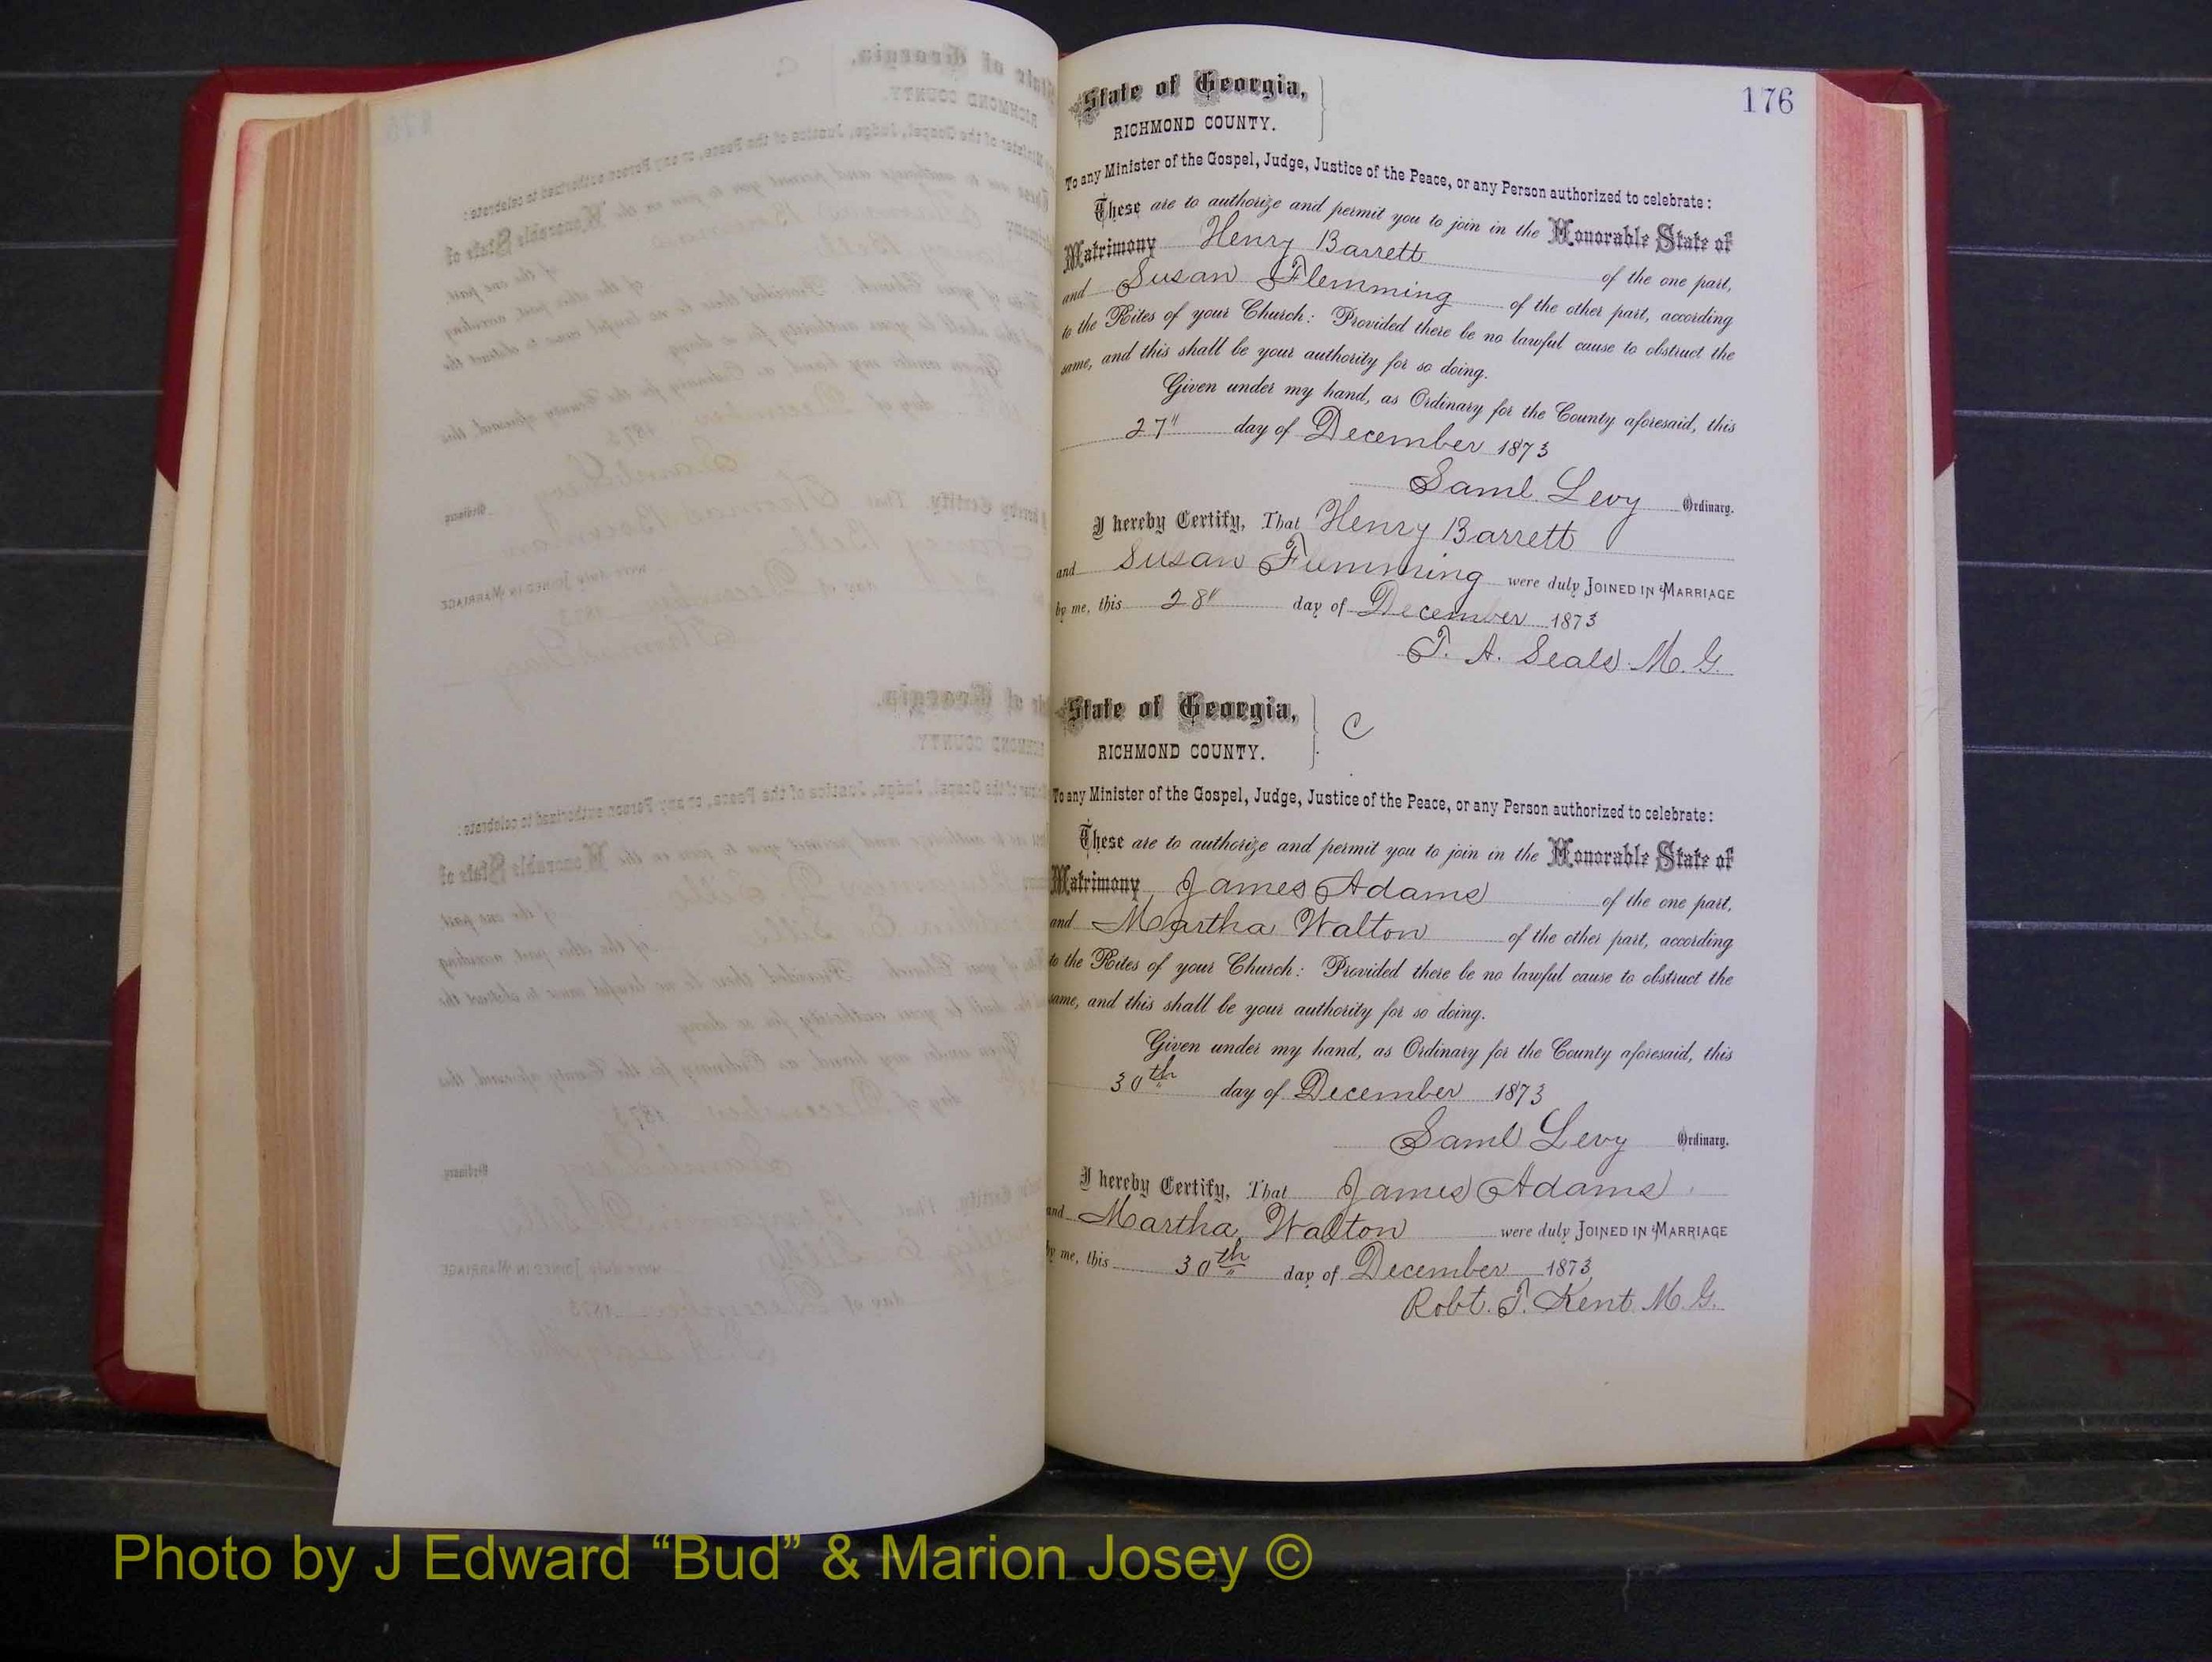 176
State of Georgia,
RICHMOND COUNTY.
To any Minister of the Gospel, Judge, Justice of the Peace, or any Person authorized to celebrate:
These are to authorize and permit you to join in the Honorable State of
Matrimony Henry Barrett of the one part,
and Susan Flemming of the other part, according
to the Rites of your Church: Provided there be no lawful cause to obstruct the
same, and this shall be your authority for so doing.
Given under my hand, as Ordinary for the County aforesaid, this
27" day of December 1873
Saml. Levy Ordinary.
I hereby Certify, That Henry Barrett
and Susan Flemming were duly JOINED IN MARRIAGE
by me, this 28" day of December 1873
T. A. Seals. M. G.
State of Georgia, C
RICHMOND COUNTY.
To any Minister of the Gospel, Judge, Justice of the Peace, or any Person authorized to celebrate:
These are to authorize and permit you to join in the Honorable State of
Matrimony James Adams of the one part,
and Martha Walton of the other part, according
to the Rites of your Church: Provided there be no lawful cause to obstruct the
same, and this shall be your authority for so doing.
Given under my hand, as Ordinary for the County aforesaid, this
30th day of December 1873
Saml Levy Ordinary.
I hereby Certify, That James Adams
and Martha Walton were duly JOINED IN MARRIAGE
by me, this 30th day of December 1873
Robt. T. Kent. M. G.
Photo by J Edward “Bud” & Marion Josey ©